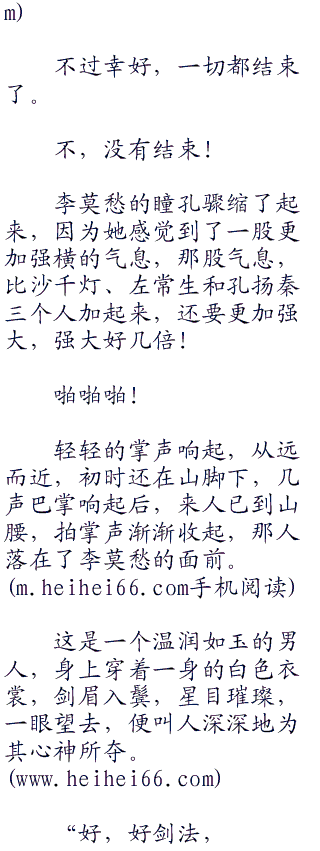 m)
不过幸好，一切都结束
了。
不，没有结束！
李莫愁的瞳孔骤缩了起
来，因为她感觉到了一股更
加强横的气息，那股气息，
比沙千灯、左常生和孔扬秦
三个人加起来，还要更加强
大，强大好几倍！
啪啪啪！
轻轻的掌声响起，从远
而近，初时还在山脚下，几
声巴掌响起后，来人已到山
腰，拍掌声渐渐收起，那人
落在了李莫愁的面前。
(m.heihei66.com手机阅读)
这是一个温润如玉的男
人，身上穿着一身的白色衣
裳，剑眉入鬓，星目璀璨，
一眼望去，便叫人深深地为
其心神所夺。
(www.heihei66.com)
“好，好剑法，